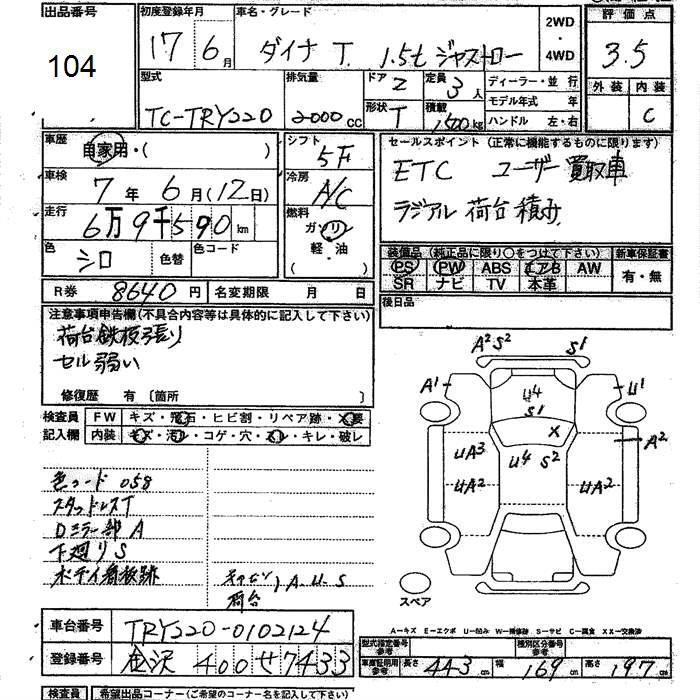 出品番号
104
初度登録年月
17 6月
車名・グレード
ダイナ T. 1.5t ジャストロー
2WD
・
4WD
評価点
3.5
型式
TC-TRY220
排気量
2000 CC
ドア 2
形状 T
定員 3人
積載 1500 kg
ディーラー・並行
モデル年式 年
ハンドル 左・右
外装 内装
C
車歴
自家用・( )
車検
7年 6月(12日)
走行
6万9千590 km
色 シロ 色替 色コード
シフト
5F
冷房
A/C
燃料
ガソリン
軽・油
( )
セールスポイント (正常に機能するものに限ります)
ETC ユーザー買取車
ラジアル 荷台積み
装備品 (純正品に限り○をつけて下さい) 新車保証書
PS PW ABS エアB AW
SR ナビ TV 本革
有・無
R券 8640円 名変期限 月 日
後日品
注意事項申告欄(不具合内容等は具体的に記入して下さい)
荷台鉄板張り
セル弱い
修復歴 有 〔箇所 〕
検査員 FW キズ・飛石・ヒビ割・リペア跡・×要
記入欄 内装 キズ・汚レ・コゲ・穴・スレ・キレ・破レ
色コード 058
スタッドレスT
Dミラー部 A
下廻り S
ボディ看板跡
キャビン
荷台
A.U.S
A2 S2 S1
A1 U4 U1
S1
X A2
UA3 U4 S2
UA2 UA2
スペア
A-キズ E-エクボ U-凹み W-補修跡 S-サビ C-腐食 XX-交換済
車台番号 TRY220-0102124
登録番号 金沢 400 せ 7433
型式指定番号 参考
種別区分番号 参考
車庫証明用 参考 長さ 443cm 幅 169cm 高さ 197cm
検査員 希望出品コーナー(ご希望のコーナー名を記入して下さい)